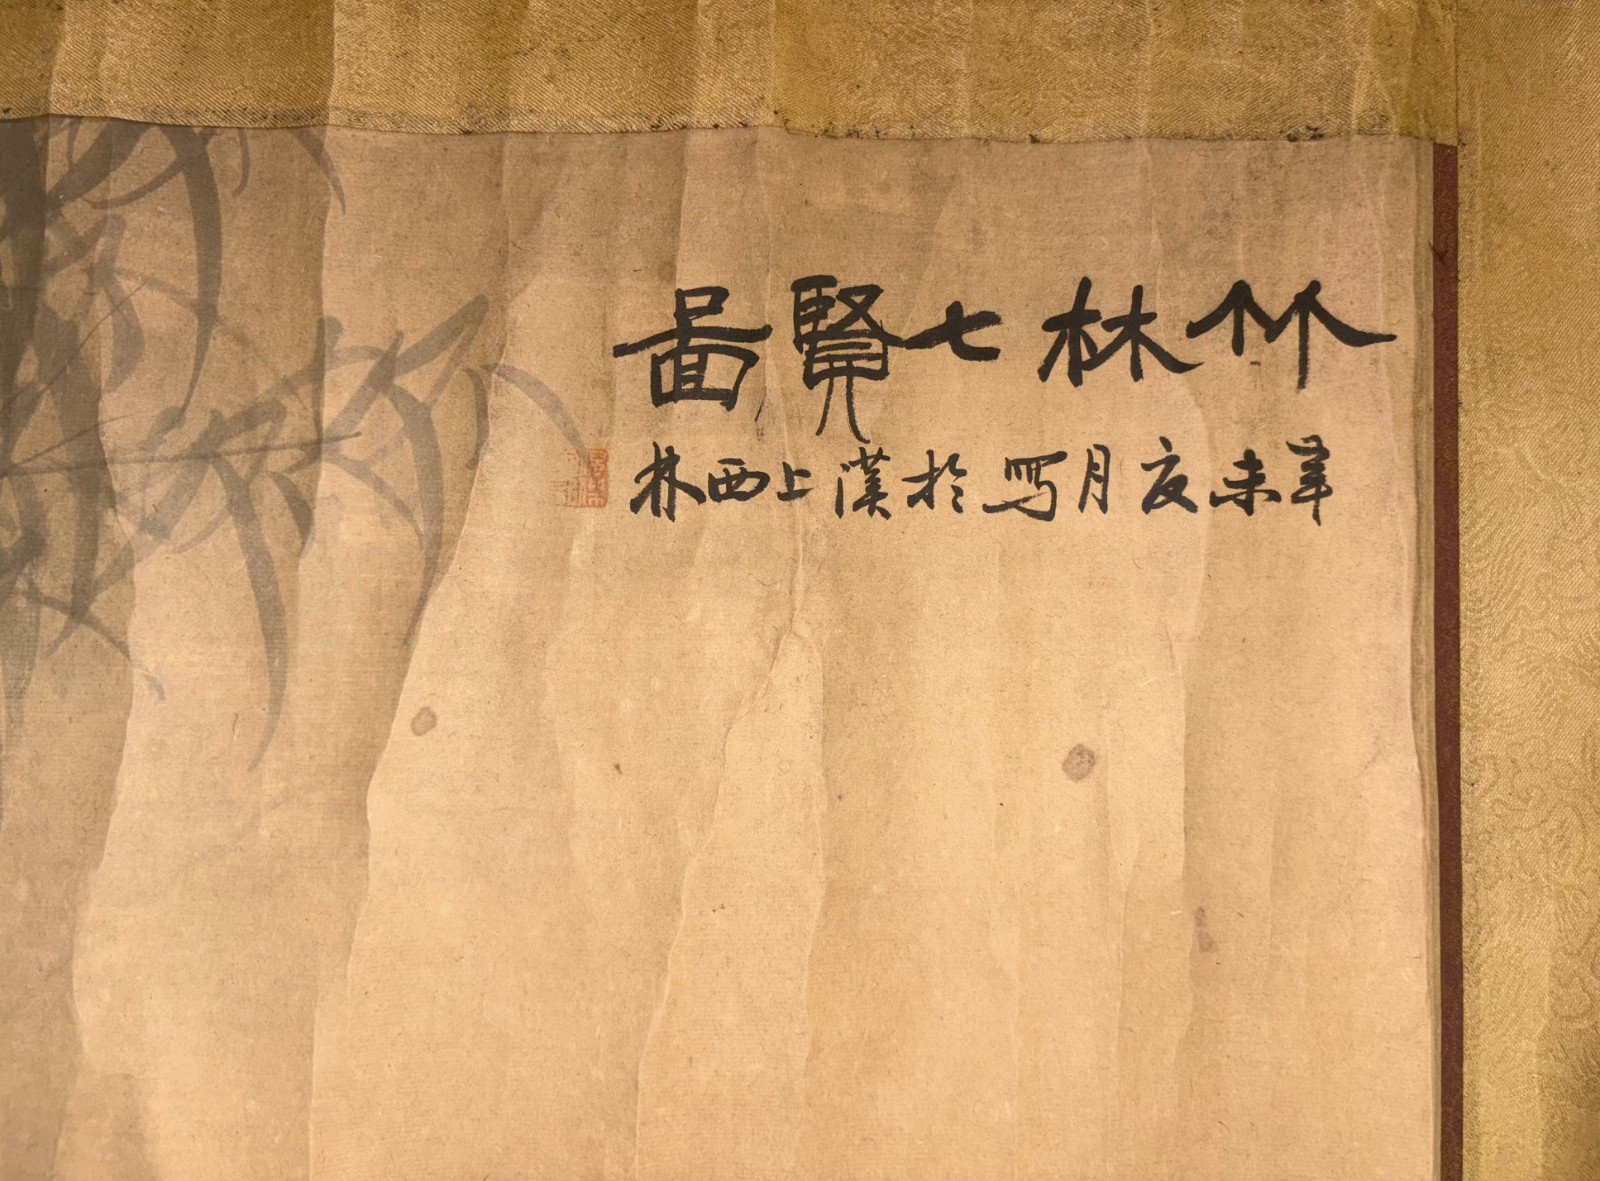 竹林七賢圖
辛未夏月寫於漢上西林